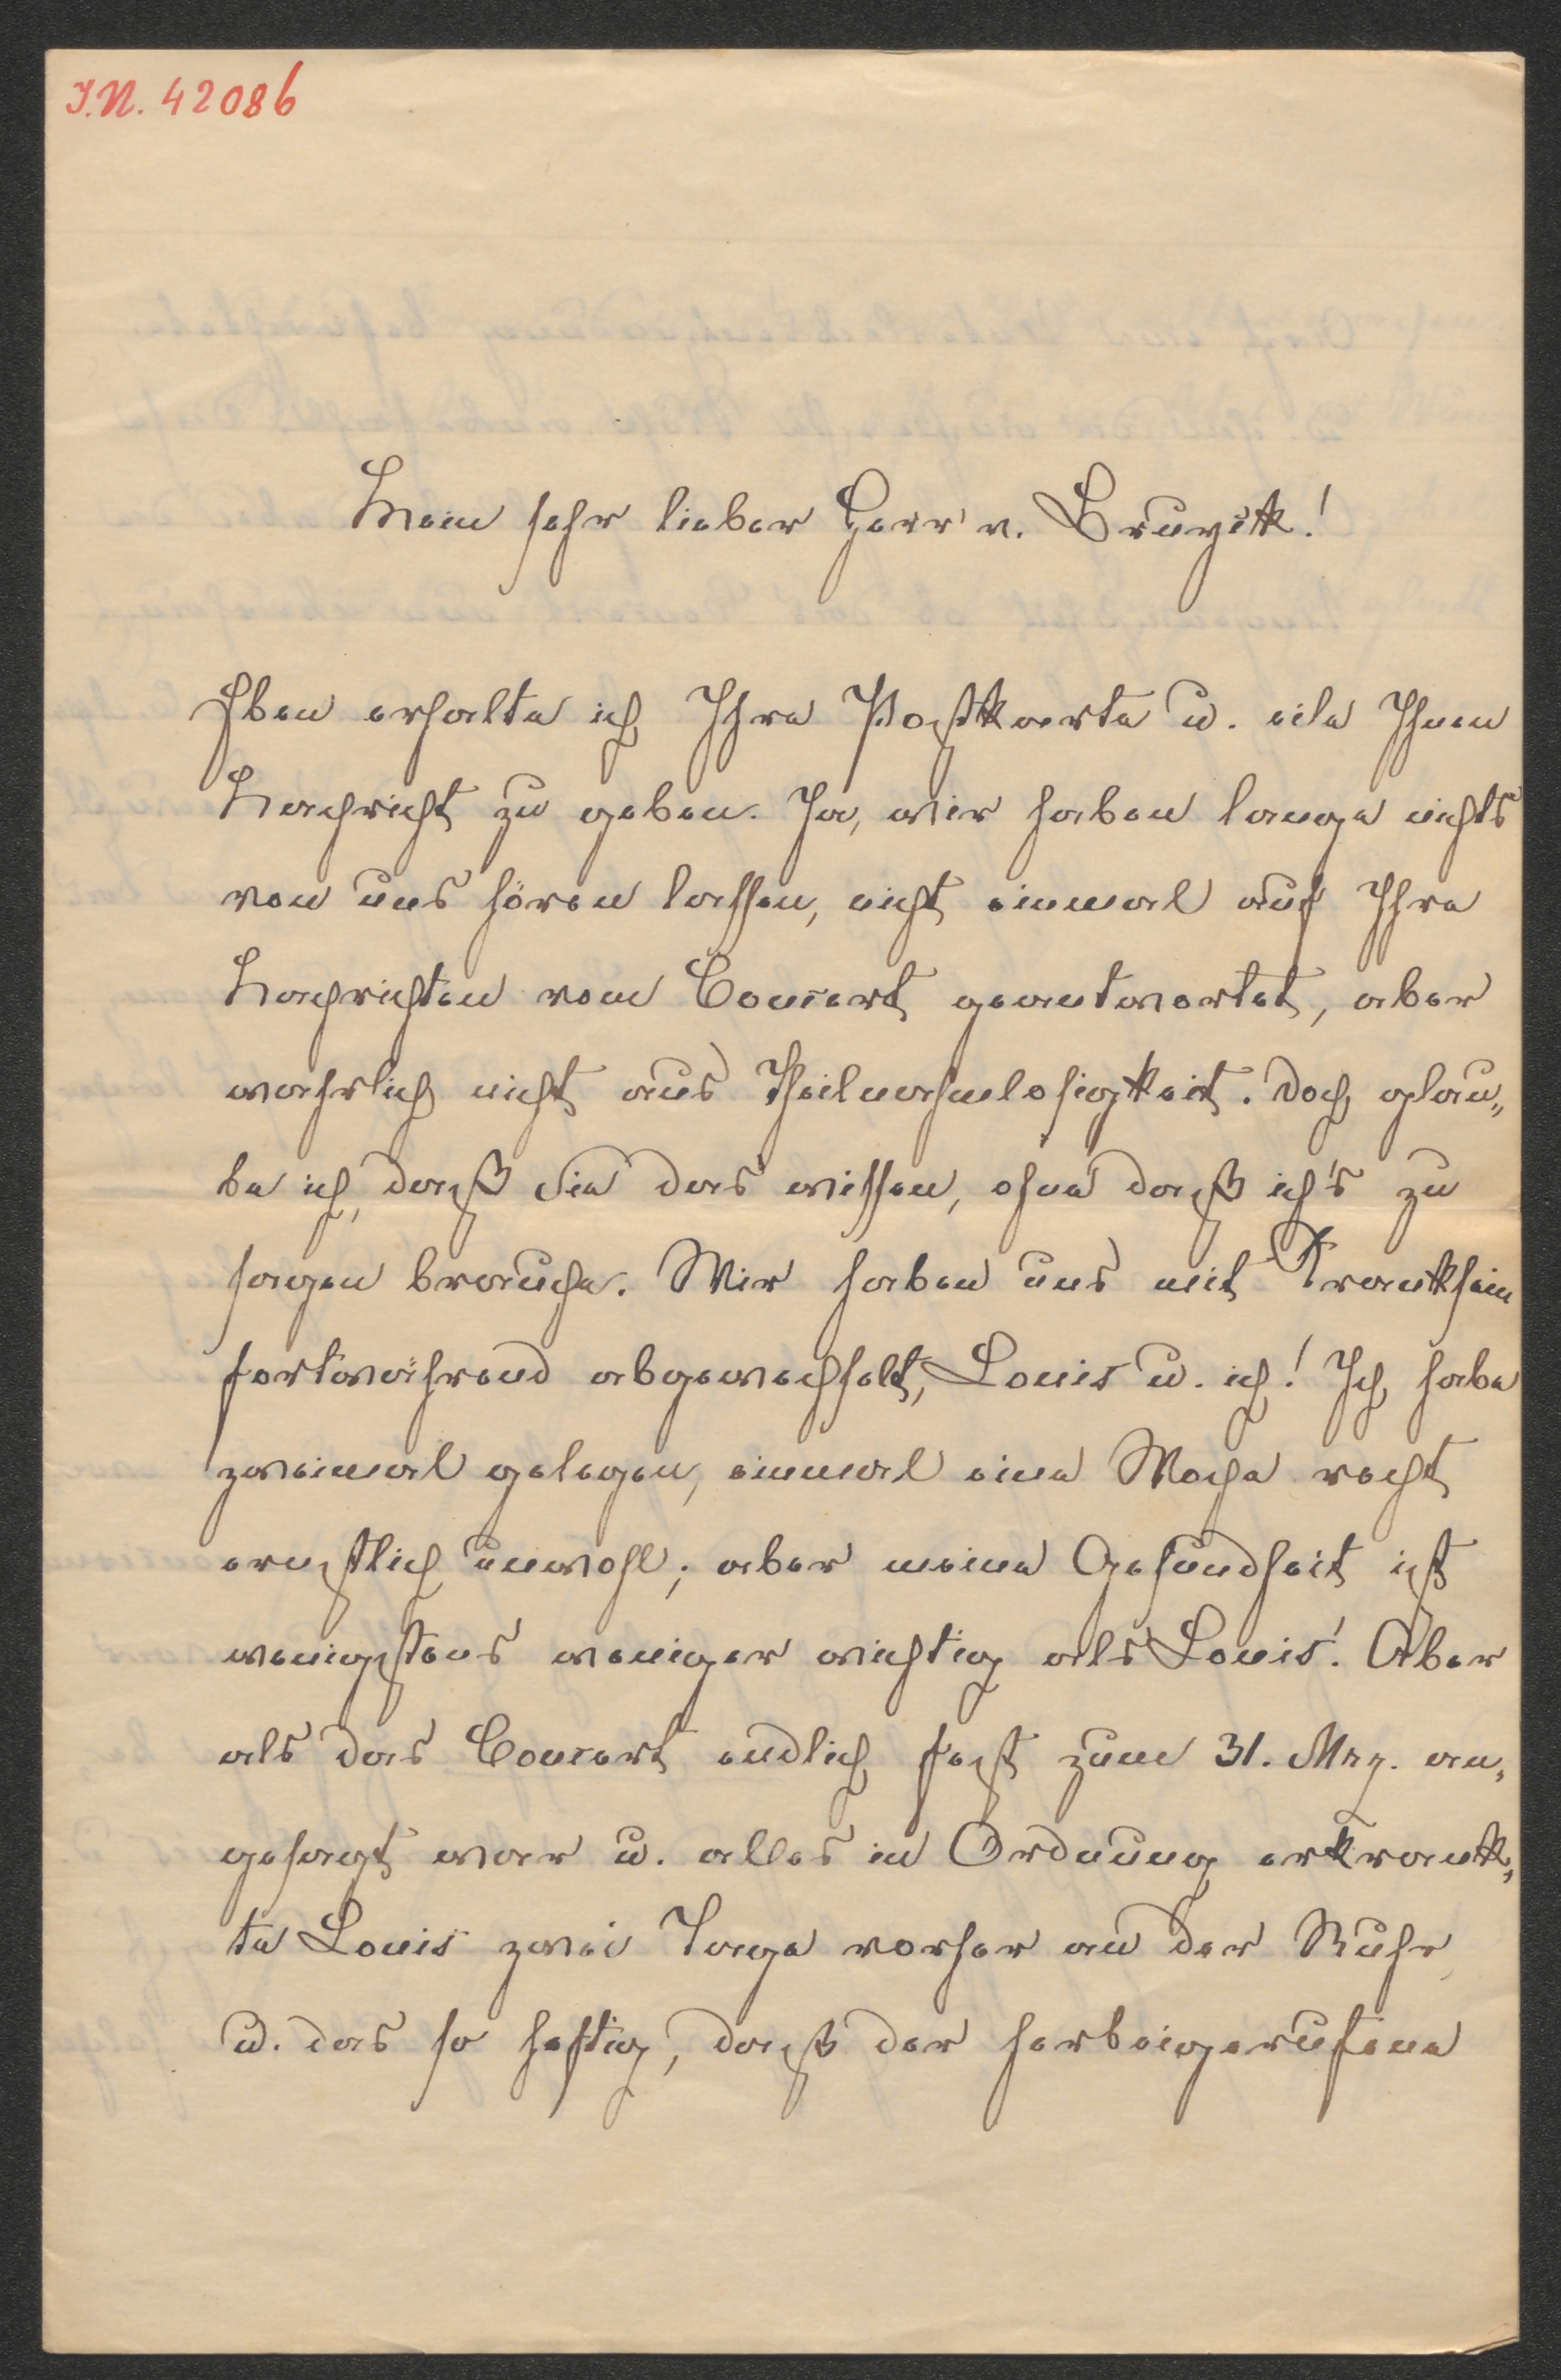 I.N. 42086
Mein sehr lieber Herr v. Bruyck!
Eben erhalte ich Ihre Postkarte u. eile Ihnen
Nachricht zu geben. Ja, wir haben lange nichts
von uns hören lassen, nicht einmal auf Ihre
Nachrichten vom Concert geantwortet, aber
wahrlich nicht aus Theilnahmlosigkeit. Doch glau„
be ich, daß Sie das wissen, ohne daß ich's zu
sagen brauche. Wir haben uns mit Kranksein
fortwährend abgewechselt, Louis u. ich! Ich habe
zweimal gelegen, einmal eine Woche recht
ernstlich unwohl; aber meine Gesundheit ist
wenigstens weniger wichtig als Louis'. Aber
als das Concert endlich fest zum 31. Mrz. an„
gesagt war u. alles in Ordnung erkrank„
te Louis zwei Tage vorher an der Ruhr
u. das so heftig, daß der herbeigerufene